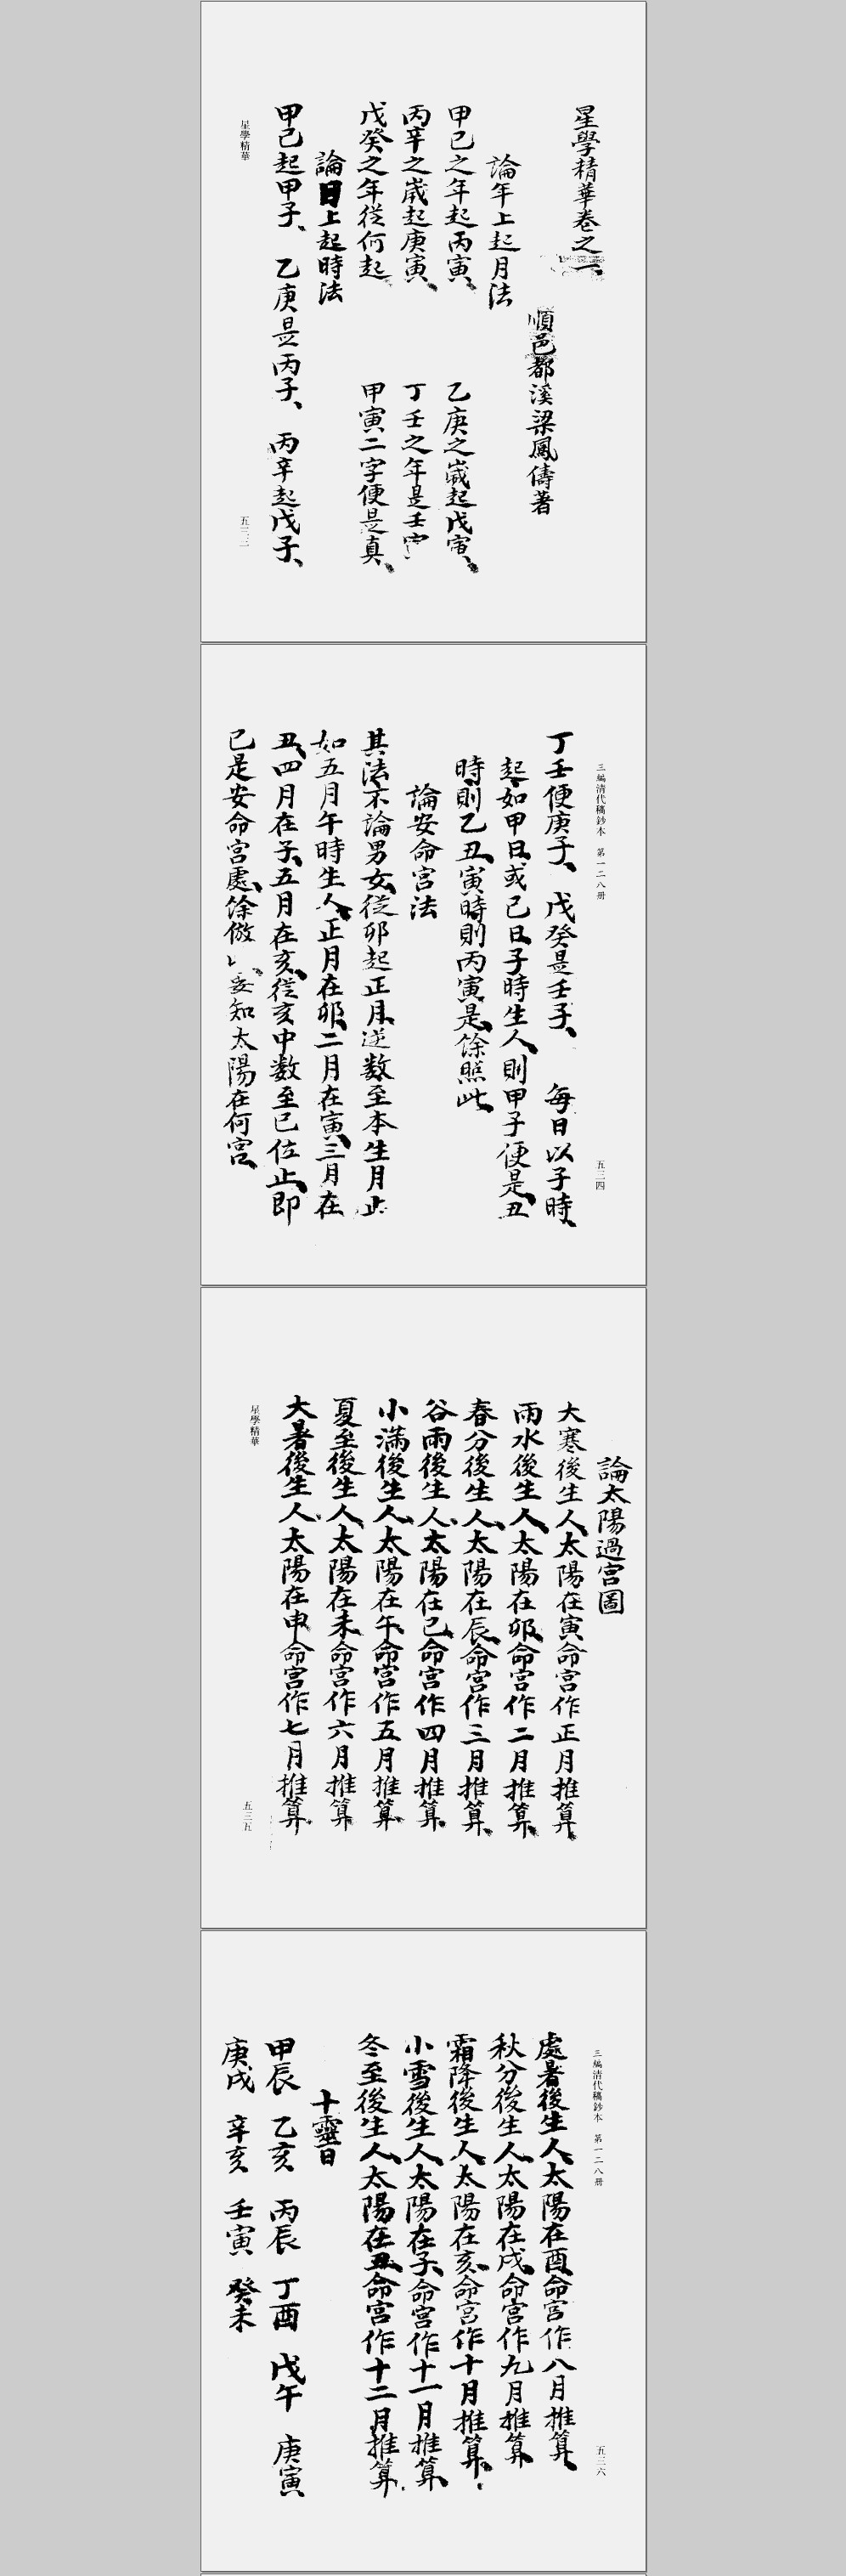 星學精華卷之一
順邑都溪梁鳳儔著
論年上起月法
甲己之年起丙寅、乙庚之歲起戊寅、
丙辛之歲起庚寅、丁壬之年是壬
戊癸之年從何起、甲寅二字便是真、
論日上起時法
甲己起甲子、乙庚是丙子、丙辛起戊子、
星學精華
五三三
三編清代稿鈔本 第一二八册
五三四
丁壬便庚子、戊癸是壬子、每日以子時、
起、如甲日、或己日、子時生人、則甲子便是、丑
時則乙丑、寅時則丙寅是、餘照此、
論安命宮法
其法不論男女、從卯起正月、逆数至本生月止
如五月午時生人、正月在卯、二月在寅、三月在
丑、四月在子、五月在亥、從亥中数至巳位止、即
已是安命宮處、餘倣 妄知太陽在何宮、
論太陽過宮圖
大寒後生人、太陽在寅、命宮作正月推算、
雨水後生人、太陽在卯、命宮作二月推算、
春分後生人、太陽在辰、命宮作三月推算、
谷雨後生人、太陽在巳、命宮作四月推算、
小滿後生人、太陽在午、命宮作五月推算、
夏至後生人、太陽在未、命宮作六月推算
大暑後生人、太陽在申、命宮作七月推算、
星學精華
五三五
三編清代稿鈔本 第一二八册
五三六
處暑後生人、太陽在酉、命宮作八月推算、
秋分後生人、太陽在戌、命宮作九月推算、
霜降後生人、太陽在亥、命宮作十月推算、
小雪後生人、太陽在子、命宮作十一月推算、
冬至後生人、太陽在丑、命宮作十二月推算、
十靈日
甲辰 乙亥 丙辰 丁酉 戊午 庚寅
庚戌 辛亥 壬寅 癸未